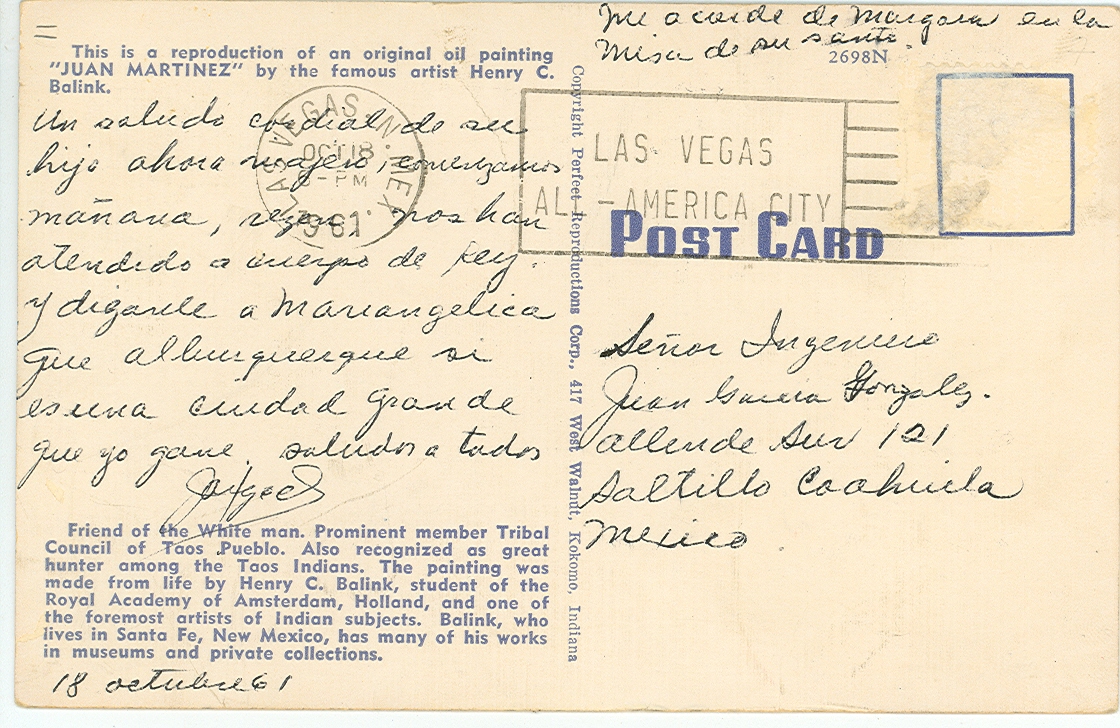 Me acorde de Margara en la
Misa de su santo.
2698N
This is a reproduction of an original oil painting
"JUAN MARTINEZ" by the famous artist Henry C.
Balink.
Un saludo cordial de su
hijo ahora viajero, comenzamos
mañana, nos han
atendido a cuerpo de rey.
y diganle a Mariangelica
que alburquerque si
es una ciudad grande
que yo gane. saludos a todos
Jorge
Friend of the White man. Prominent member Tribal
Council of Taos Pueblo. Also recognized as great
hunter among the Taos Indians. The painting was
made from life by Henry C. Balink, student of the
Royal Academy of Amsterdam, Holland, and one of
the foremost artists of Indian subjects. Balink, who
lives in Santa Fe, New Mexico, has many of his works
in museums and private collections.
18 octubre 61
LAS VEGAS N. MEX.
OCT 18
PM
1961
Copyright Perfect Reproductions Corp., 417 West Walnut, Kokomo, Indiana
LAS VEGAS
ALL-AMERICA CITY
POST CARD
Señor Ingeniero
Juan Garcia Gonzalez.
allende Sur 121
Saltillo Coahuila
Mexico